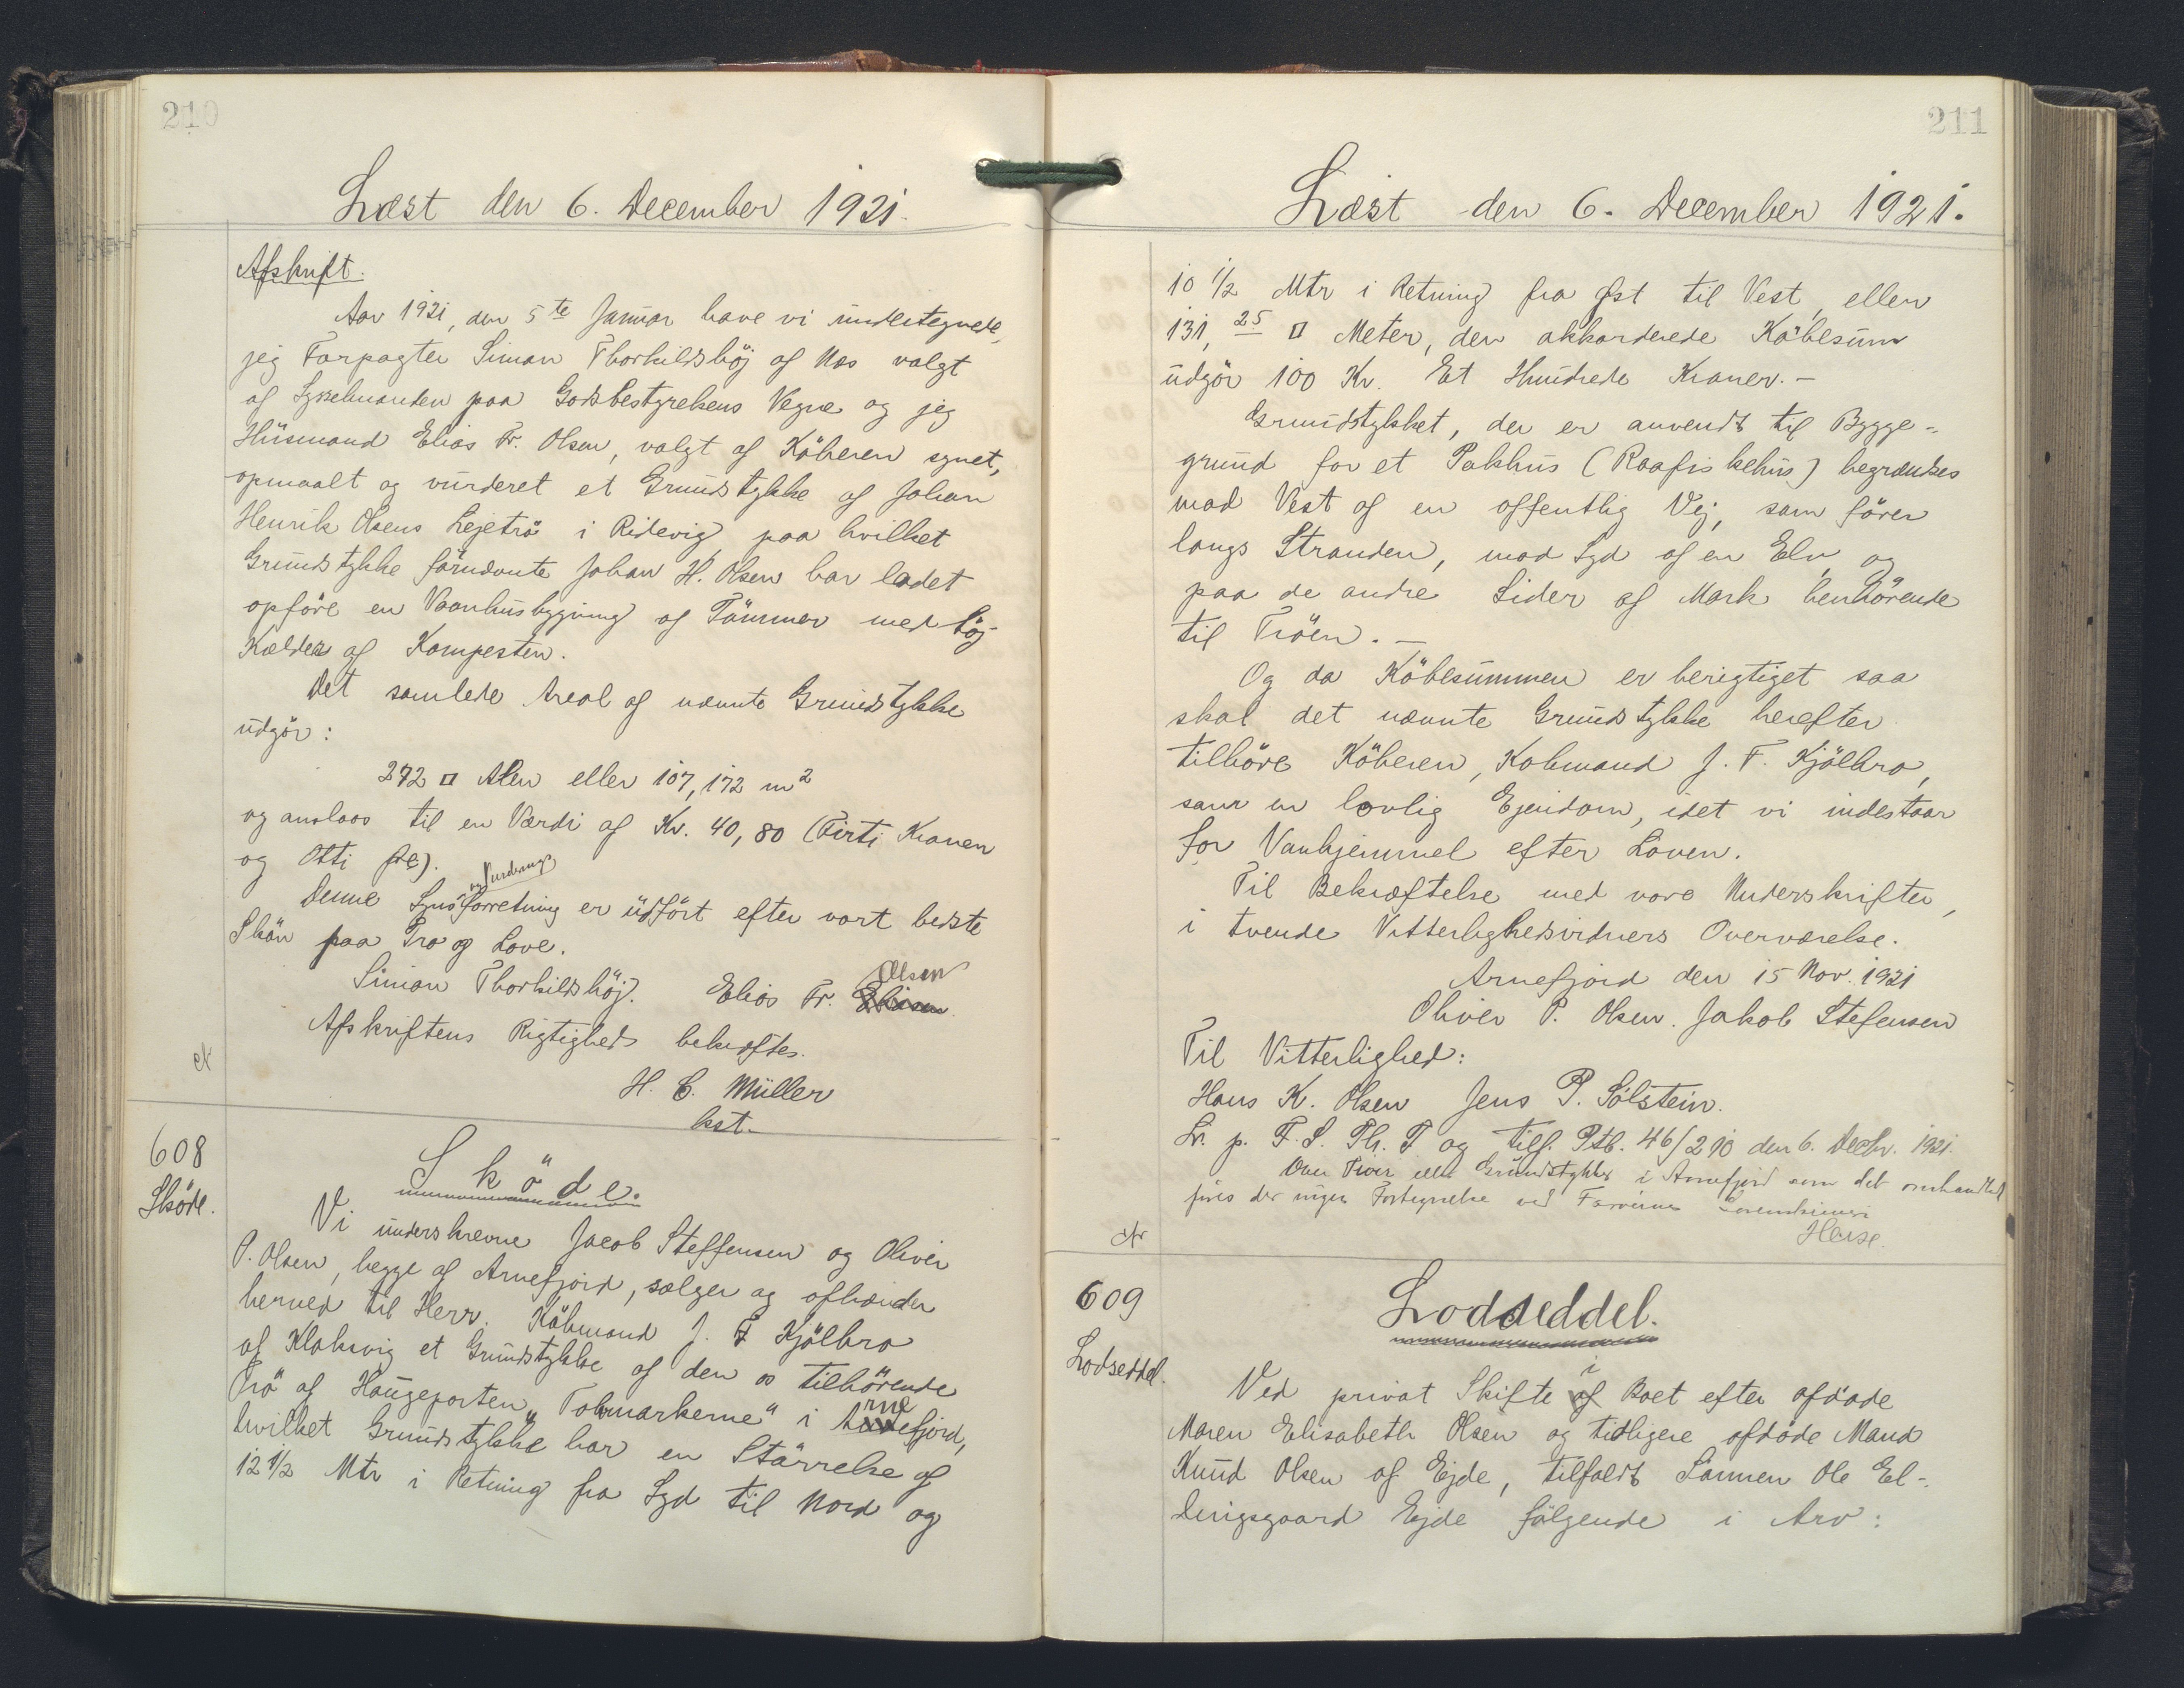 210
Læst den 6. December 1921.
Afskrift.
Aar 1921, den 5te Januar have vi undertegnede,
jeg Forpagter Simon Thorkildshöj af Nes valgt
af Sysselmanden paa Godsbestyrelsens Vegne og jeg
Husmand Elias Fr. Olsen, valgt af Köberen synet,
opmaalt og vurderet et Grundstykke af Johan
Henrik Olsens Lejetrö i Ridevig paa hvilket
Grundstykke förnævnte Johan H. Olsen har ladet
opföre en Vaanhusbygning af Tömmer med höj
Kælder af Kampesten.
Det samlede Areal af nævnte Grundstykke
udgör:
272 □ Alen eller 107,172 m²
og anslaas til en Værdi af Kr. 40,80 (Firti Kroner
og Otti Øre).
og Vurderings
Denne Synsforretning er udfört efter vort bedste
Skön paa Tro og Love.
Simon Thorkildshöj. Elias Fr. Olsen
Afskriftens Rigtighed bekræftes.
H. C. Müller
kst.
608
Sköde.
Sköde.
Vi underskrevne Jacob Steffensen og Oliver
P. Olsen, begge af Arnefjord, sælger og afhænder
herved til Herr. Köbmand J. F Kjölbro
af Klaksvig et Grundstykke af den os tilhörende
Trö af Haugeparten „Tolvmarkerne" i Arnefjord,
hvilket Grundstykke har en Störrelse af
12 1/2 Mtr i Retning fra Syd til Nord og
211
Læst den 6. December 1921.
10 1/2 Mtr i Retning fra Øst til Vest, eller
131,25 □ Meter, den akkorderede Köbesum
udgör 100 Kr. Et Hundrede Kroner. -
Grundstykket, der er anvendt til Bygge-
grund for et Pakhus (Raafiskehus) begrænses
mod Vest af en offentlig Vej, som förer
langs Stranden, mod Syd af en Elv, og
paa de andre Sider af Mark henhörende
til Tröen. -
Og da Köbesummen er berigtiget saa
skal det nævnte Grundstykke herefter
tilhöre Köberen, Kobmand J. F. Kjölbro,
som en lovlig Ejendom, idet vi indestaar
for Vanhjemmel efter Loven.
Til Bekræftelse med vore Underskrifter,
i tvende Vitterlighedsvidners Overværelse.
Arnefjord den 15 Nov. 1921
Oliver P. Olsen. Jakob Stefensen
Til Vitterlighed:
Hans K. Olsen Jens P. Sölstein.
Lr. p. F. S. Th. T og tilf. Ptb. 46/210 den 6. Decbr. 1921.
Over Tröer eller Grundstykker i Arnefjord som det omhandlede
föres der ingen Fortegnelse ved Færöernes Sorenskriveri
Heise.
609
Lodseddel.
Lodseddel.
Ved privat Skifte i Boet efter afdöde
Maren Elisabeth Olsen og tidligere afdöde Mand
Knud Olsen af Ejde, tilfaldt Sönnen Ole El-
dingsgaard Ejde fölgende i Arv: